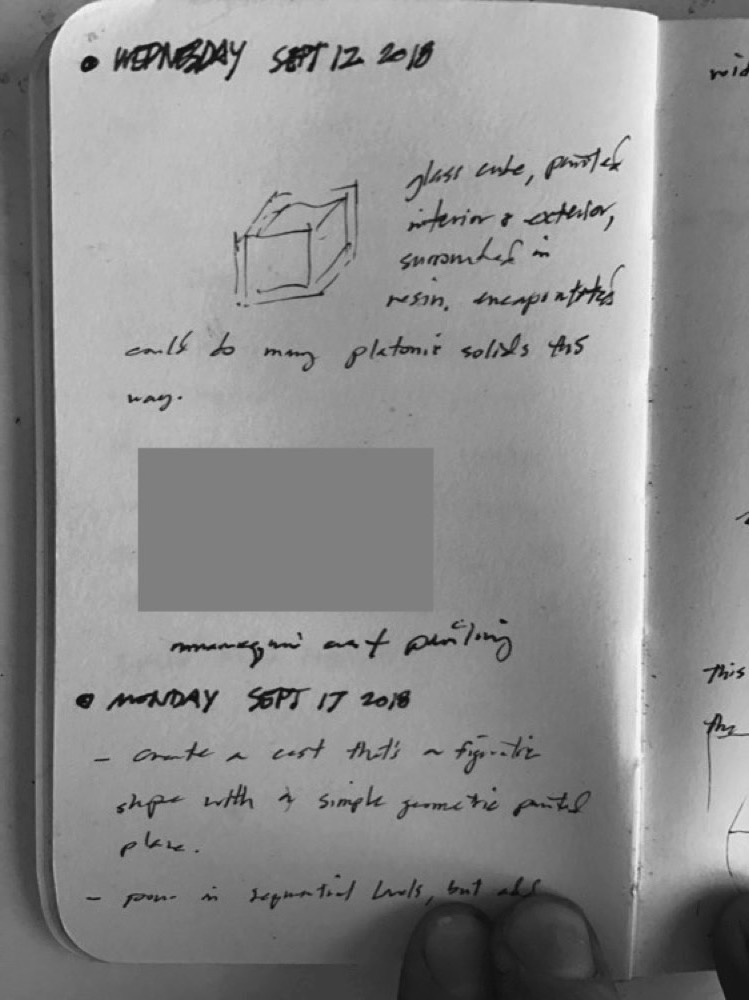 • WEDNESDAY SEPT 12 2018
glass cube, painted
interior & exterior,
surrounded in
resin. encapsulated
could do many platonic solids this
way.
mannequin cast painting
• MONDAY SEPT 17 2018
- create a cast that's a figurative
shape with a simple geometric painted
plane.
- pour in sequential levels, but
this